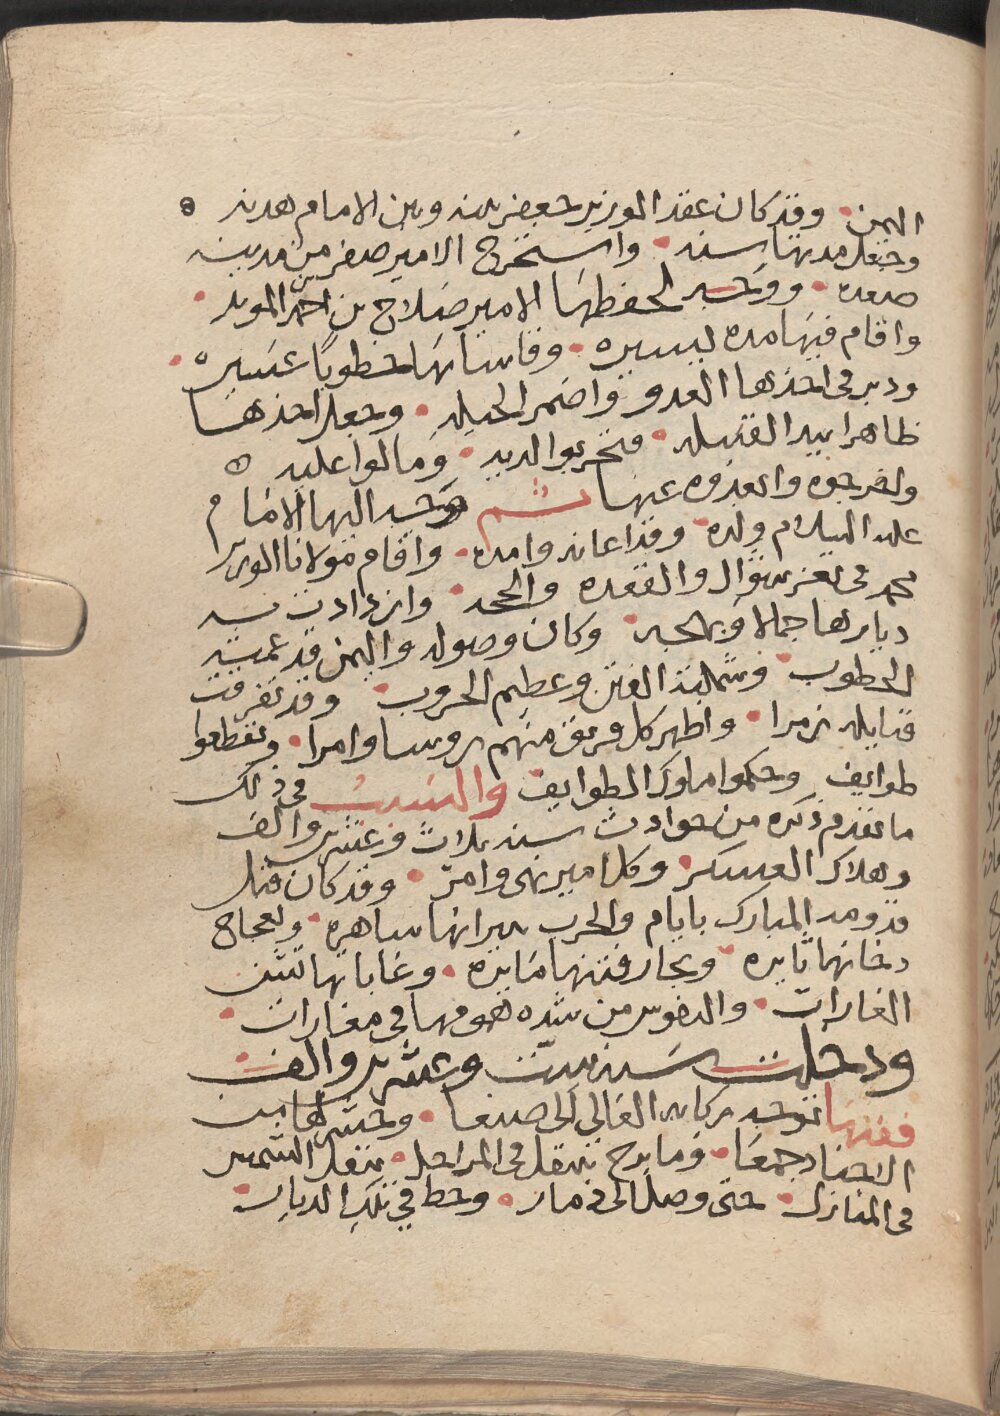 اليمن وقد كان عقد الوزير جعفر بينه وبين الامام هدنه
وجعل مدتها سنه واستخرج الامير صفر من مدينه
صعده ووجه لحفظها الامير صلاح بن احمد المويد
واقام فيها مده يسيره وقاسا بها خطوبًا عسيره
ودبر في اخذها العدو واضمر الحيله وجعل اخذها
ظاهرا بيد القبيله فتحزبوا اليه ومالوا عليه
واخرجوه وابعدوه عنها ثم وجه اليها الامام
عليه السلام ولده وقد اعانه وامده واقام مولانا الوزير
محمد في تعز شوال والقعده والحجه وازدادت به
ديارها جمالا وبهجه وكان وصوله واليمن قد عمته
الخطوب وشملته الفتن وعظيم الحروب وقد تفرقت
قبايله زمرا واظهر كل فريق منهم روسا وامرا وتقطعوا
طوايف وحكموا ملوك الطوايف والسبب في ذلك
ما تقدم ذكره من حوادث سنه ثلاث وعشرين والف
وهلاك العسكر وكل امير نهى وامر وقد كان قبل
قدومه المبارك بايام والحرب نيرانها ساهره ولعجاج
دخانها ثايره وبحار فتنها مايره وغاباتها تشن
الغارات والنفوس من شده همومها في مغارات
ودخلت سنه ست وعشرين والف
ففيها توجه ركابه العالي الى صنعا وحشر لها من
الاجناد جمعا وما برح ينتقل في المراحل تنقل الشمس
في المنازل حتى وصل الى ذمار وحط في تلك الديار